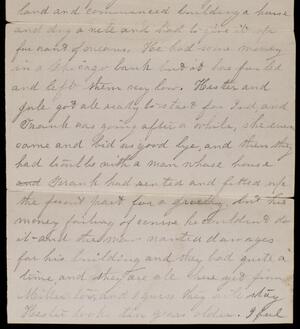 land and commenced building a house
and dug a into and had to give it up
for want of means. He had some money
in a Chicago bank but it has failed
and left them very low. Hester and
got all ready to start for Ind and
Frank was going after a while, she even
came and bid us good bye, and then they
had trouble with a man whose house
and Frank had rented and fitted up
the front part for a grocery, but his
money failing of course he couldn't do
it and this man wanted damages
for his building and they had quite a
time and they are all here yet from
and I guess they will stay
Hester look ten years older. I feel